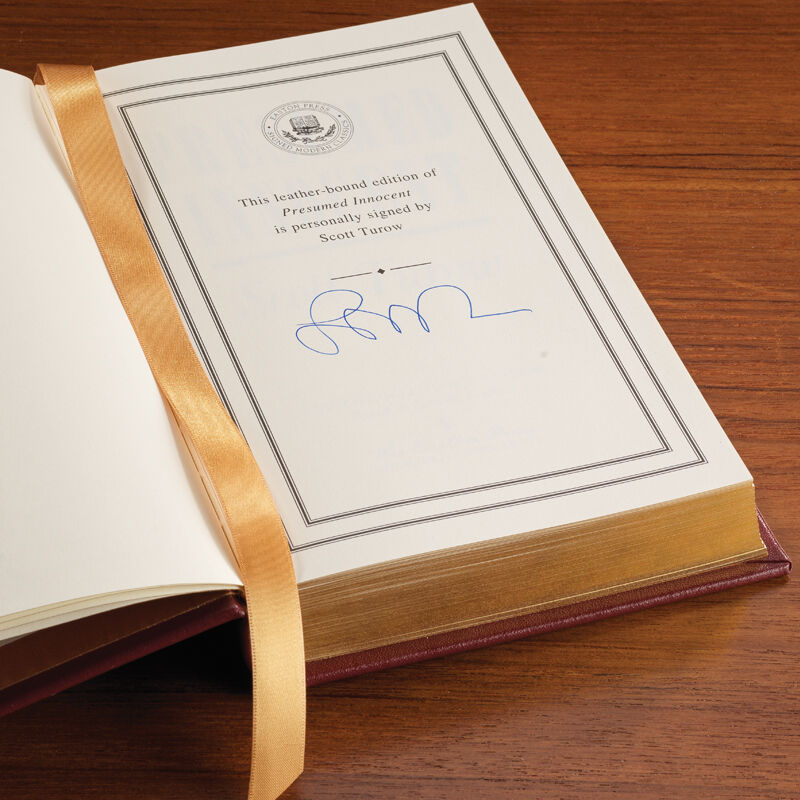 EASTON PRESS
SIGNED MODERN CLASSICS
This leather-bound edition of
Presumed Innocent
is personally signed by
Scott Turow